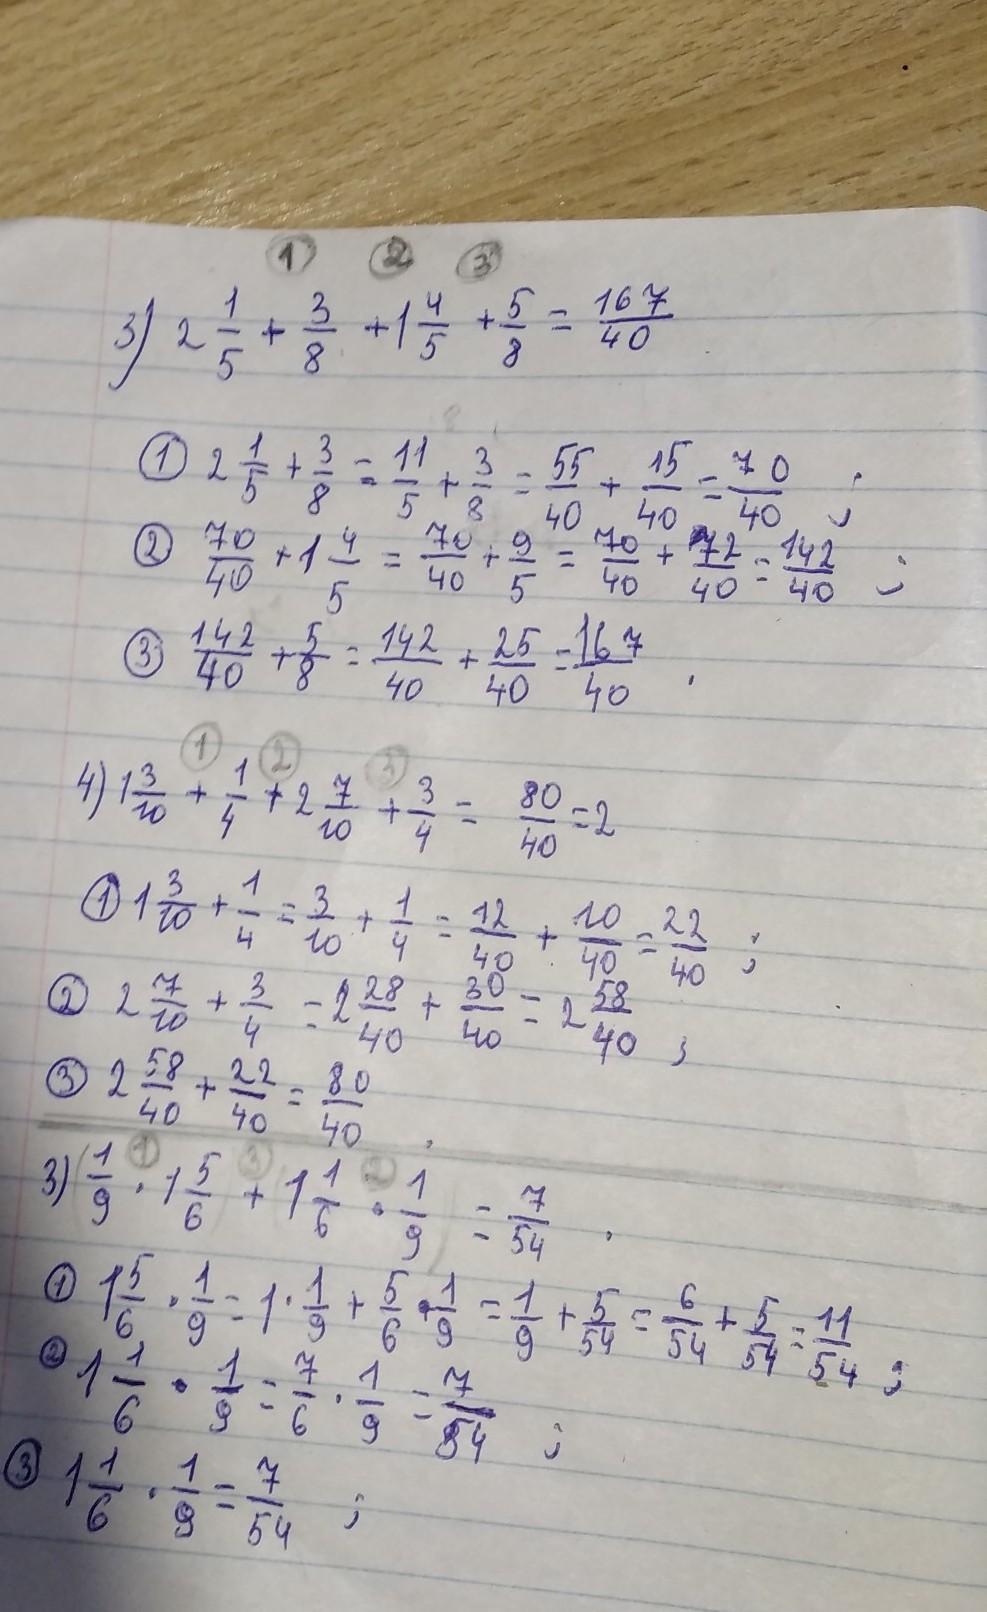 ① ② ③
3) 2 1/5 + 3/8 + 1 4/5 + 5/8 = 167/40
① 2 1/5 + 3/8 = 11/5 + 3/8 = 55/40 + 15/40 = 70/40 ;
② 70/40 + 1 4/5 = 70/40 + 9/5 = 70/40 + 72/40 = 142/40 ;
③ 142/40 + 5/8 = 142/40 + 25/40 = 167/40 .
① ② ③
4) 1 3/10 + 1/4 + 2 7/10 + 3/4 = 80/40 = 2
① 1 3/10 + 1/4 = 3/10 + 1/4 = 12/40 + 10/40 = 22/40 ;
② 2 7/10 + 3/4 = 2 28/40 + 30/40 = 2 58/40 ;
③ 2 58/40 + 22/40 = 80/40 .
① ③ ②
3) (1/9 · 1 5/6) + (1 1/6 · 1/9) = 7/54 .
① 1 5/6 · 1/9 = 1 · 1/9 + 5/6 · 1/9 = 1/9 + 5/54 = 6/54 + 5/54 = 11/54 ;
② 1 1/6 · 1/9 = 7/6 · 1/9 = 7/54 ;
③ 1 1/6 · 1/9 = 7/54 ;